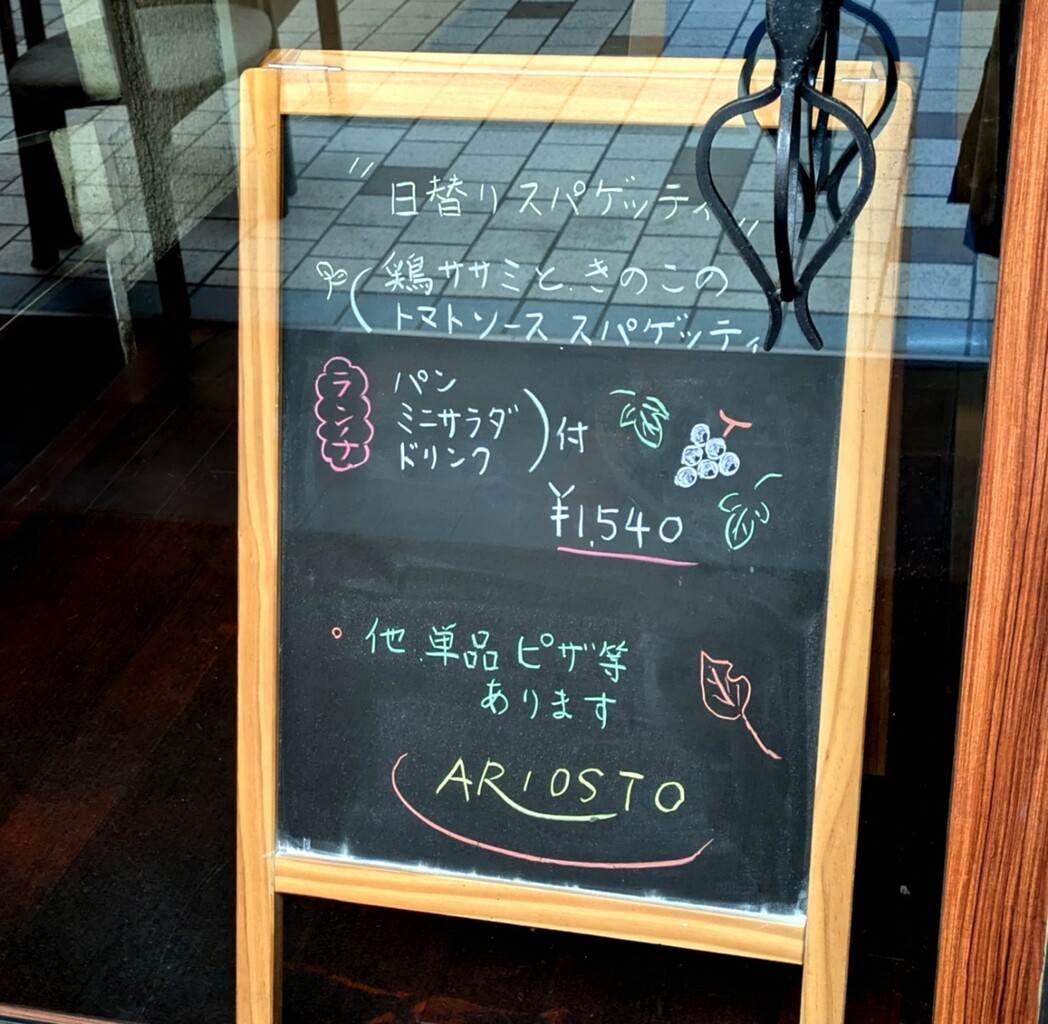 "日替りスパゲッティ"
鶏ササミときのこの
トマトソーススパゲッティ
ランチ
パン
ミニサラダ
ドリンク
付
¥1,540
他単品ピザ等
あります
ARIOSTO